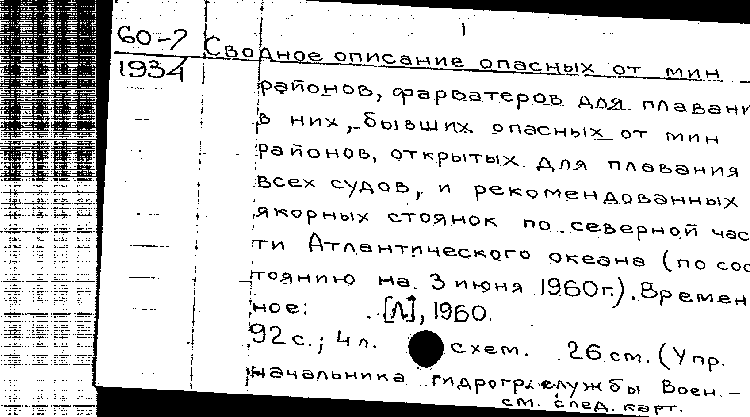 1
60-7 Сводное описание опасных от мин
1934
районов, фарватеров для плавани
в них, бывших опасных от мин
районов, открытых для плавания
всех судов, и рекомендованных
якорных стоянок по северной час
ти Атлантического океана (по сос
тоянию на 3 июня 1960г.). Времен
ное: [Л], 1960.
92 с.; 4 л. схем. 26 см. (Упр.
начальника гидрогр. службы Воен.-
см. след. карт.